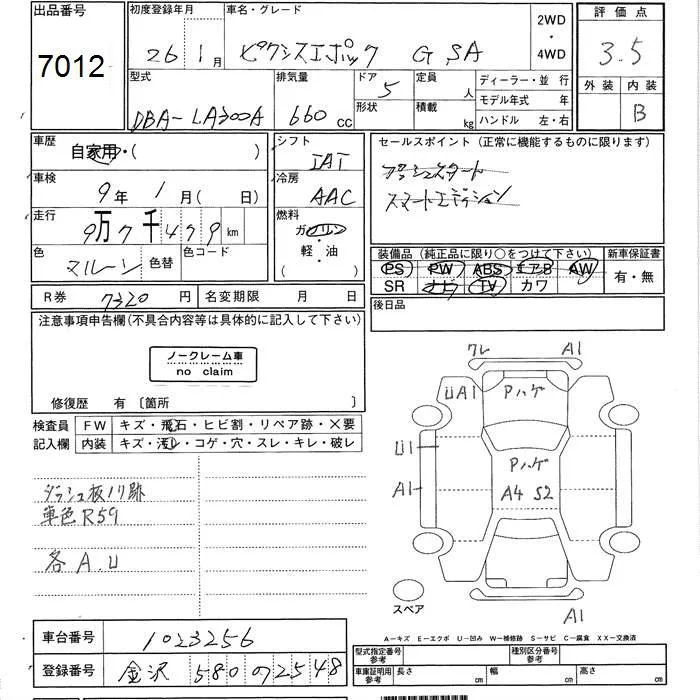 出品番号 初度登録年月 車名・グレード 2WD・4WD 評価点
7012 26年1月 ピクシスエポック G SA 3.5
型式 排気量 ドア 定員 人 ディーラー・並行 外装 内装
DBA-LA300A 660cc 5 形状 積載 kg モデル年式 年 B
ハンドル 左・右
車歴 自家用・( ) シフト IAT セールスポイント (正常に機能するものに限ります)
車検 9年1月( 日) 冷房 AAC プッシュスタート
スマートエディション
走行 9万7千479km 燃料 ガソリン
軽・油
( ・ )
色 マルーン 色替 色コード 装備品 (純正品に限り○をつけて下さい) 新車保証書
PS PW ABS エアB AW 有・無
SR ナビ TV カワ
R券 7320円 名変期限 月 日 後日品
注意事項申告欄(不具合内容等は具体的に記入して下さい)
ノークレーム車
no claim
修復歴 有 〔箇所 〕
検査員 FW キズ・飛石・ヒビ割・リペア跡・×要
記入欄 内装 キズ・汚レ・コゲ・穴・スレ・キレ・破レ
ワレ A1
UA1 Pハゲ
U1 Pハゲ
A1 A4 S2
ダッシュ板ノリ跡
車色R59
各A.U
スペア
A1
A-キズ E-エクボ U-凹み W-補修跡 S-サビ C-腐食 XX-交換済
車台番号 1023256 型式指定番号 参考 種別区分番号 参考
登録番号 金沢 580 の 2548 車庫証明用 参考 長さ cm 幅 cm 高さ cm